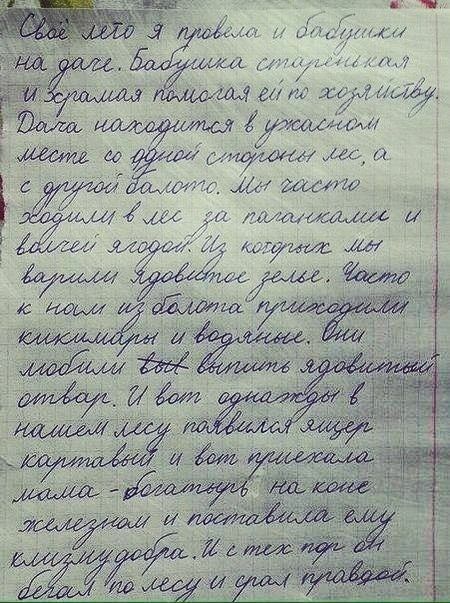 Своё лето я провела и бабушки
на даче. Бабушка старенькая
и храмая помогая ей по хозяйству.
Дача находится в ужасном
месте со одной стороны лес, а
с другой балото. Мы часто
ходили в лес за паганками и
волчей ягодой. Из которых мы
варили ядовитое зелье. Часто
к нам из болота приходили
кикимары и водяные. Они
любили выпить ядовитый
отвар. И вот однажды в
нашем лесу паявился ящер
картавый и вот приехала
мама - богатырь на коне
железном и поставила ему
клизму добра. И с тех пор он
бегал по лесу и срал правдой.